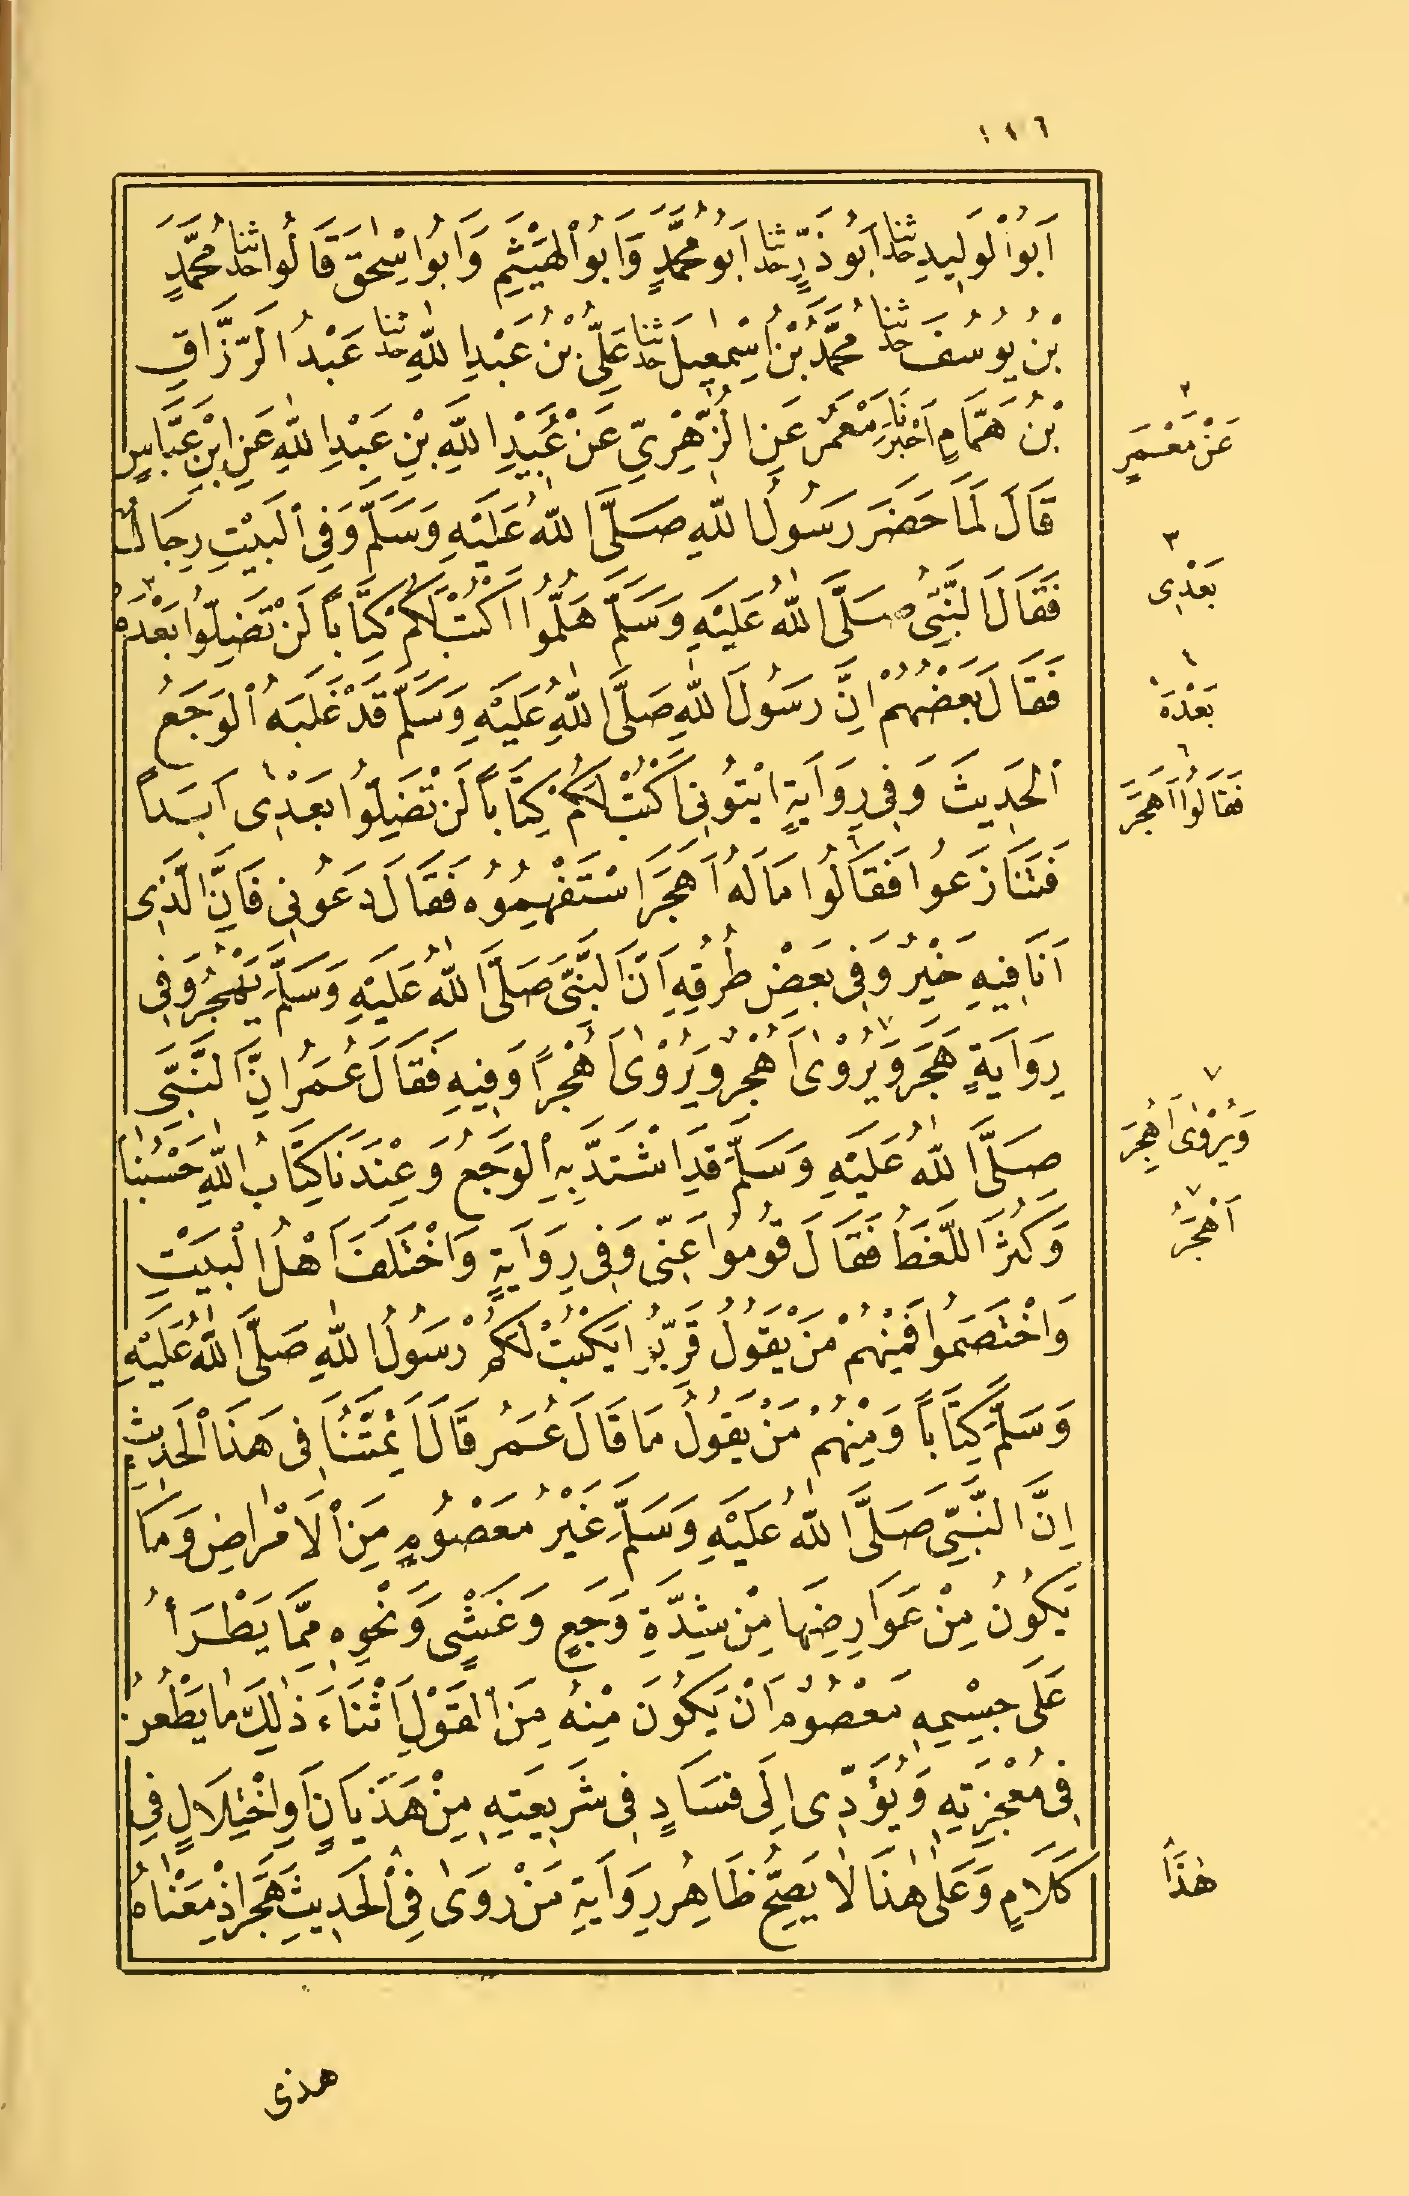 ١٨٦
اَبُو الْوَلِيدِ حَدَّثَنَا اَبُو ذَرٍّ حَدَّثَنَا اَبُو مُحَمَّدٍ وَاَبُو الْهَيْثَمِ وَاَبُو اِسْحٰقَ قَالُوا حَدَّثَنَا مُحَمَّدُ
بْنُ يُوسُفَ حَدَّثَنَا مُحَمَّدُ بْنُ اِسْمٰعِيلَ حَدَّثَنَا عَلِيُّ بْنُ عَبْدِ اللّٰهِ حَدَّثَنَا عَبْدُ الرَّزَّاقِ
بْنُ هَمَّامٍ اَخْبَرَنَا مَعْمَرٌ عَنِ الزُّهْرِيِّ عَنْ عُبَيْدِ اللّٰهِ بْنِ عَبْدِ اللّٰهِ عَنِ ابْنِ عَبَّاسٍ
قَالَ لَمَّا حَضَرَ رَسُولُ اللّٰهِ صَلَّى اللّٰهُ عَلَيْهِ وَسَلَّمَ وَفِى الْبَيْتِ رِجَالٌ
فَقَالَ النَّبِىُّ صَلَّى اللّٰهُ عَلَيْهِ وَسَلَّمَ هَلُمُّوا اَكْتُبْ لَكُمْ كِتَابًا لَنْ تَضِلُّوا بَعْدَهُ
فَقَالَ بَعْضُهُمْ اِنَّ رَسُولَ اللّٰهِ صَلَّى اللّٰهُ عَلَيْهِ وَسَلَّمَ قَدْ غَلَبَهُ الْوَجَعُ
الْحَدِيثَ وَفِى رِوَايَةٍ ايْتُونِى اَكْتُبْ لَكُمْ كِتَابًا لَنْ تَضِلُّوا بَعْدِى اَبَدًا
فَتَنَازَعُوا فَقَالُوا مَا لَهُ اَهَجَرَ اسْتَفْهِمُوهُ فَقَالَ دَعُونِى فَاِنَّ الَّذِى
اَنَا فِيهِ خَيْرٌ وَفِى بَعْضِ طُرُقِهِ اَنَّ النَّبِىَّ صَلَّى اللّٰهُ عَلَيْهِ وَسَلَّمَ يَهْجُرُ وَفِى
رِوَايَةٍ هَجَرَ وَيُرْوٰى اَهُجْرٌ وَيُرْوٰى اَهُجْرًا وَفِيهِ فَقَالَ عُمَرُ اِنَّ النَّبِىَّ
صَلَّى اللّٰهُ عَلَيْهِ وَسَلَّمَ قَدِ اشْتَدَّ بِهِ الْوَجَعُ وَعِنْدَنَا كِتَابُ اللّٰهِ حَسْبُنَا
وَكَثُرَ اللَّغَطُ فَقَالَ قُومُوا عَنِّى وَفِى رِوَايَةٍ وَاخْتَلَفَ اَهْلُ الْبَيْتِ
وَاخْتَصَمُوا فَمِنْهُمْ مَنْ يَقُولُ قَرِّبُوا يَكْتُبْ لَكُمْ رَسُولُ اللّٰهِ صَلَّى اللّٰهُ عَلَيْهِ
وَسَلَّمَ كِتَابًا وَمِنْهُمْ مَنْ يَقُولُ مَا قَالَ عُمَرُ قَالَ اَئِمَّتُنَا فِى هَذَا الْحَدِيثِ
اِنَّ النَّبِىَّ صَلَّى اللّٰهُ عَلَيْهِ وَسَلَّمَ غَيْرُ مَعْصُومٍ مِنَ الْاَمْرَاضِ وَمَا
يَكُونُ مِنْ عَوَارِضِهَا مِنْ شِدَّةِ وَجَعٍ وَغَشْىٍ وَنَحْوِهِ مِمَّا يَطْرَأُ
عَلَى جِسْمِهِ مَعْصُومٌ اَنْ يَكُونَ مِنْهُ مِنَ الْقَوْلِ اَثْنَاءَ ذٰلِكَ مَا يَطْعُنُ
فِى مُعْجِزَتِهِ وَيُؤَدِّى اِلَى فَسَادٍ فِى شَرِيعَتِهِ مِنْ هَذَيَانٍ اَوِ اخْتِلَالٍ فِى
كَلَامٍ وَعَلٰى هٰذَا لَا يَصِحُّ ظَاهِرُ رِوَايَةِ مَنْ رَوٰى فِى الْحَدِيثِ هَجَرَ اِذْ مَعْنَاهُ
هذى
٢
عَنْ مَعْمَرٍ
٣
بَعْدِى
٤
بَعْدَهُ
٦
فَقَالُوا اَهَجَرَ
٧
وَيُرْوٰى اَهُجِرَ
٧
اَهْجَرُ
هٰذَا